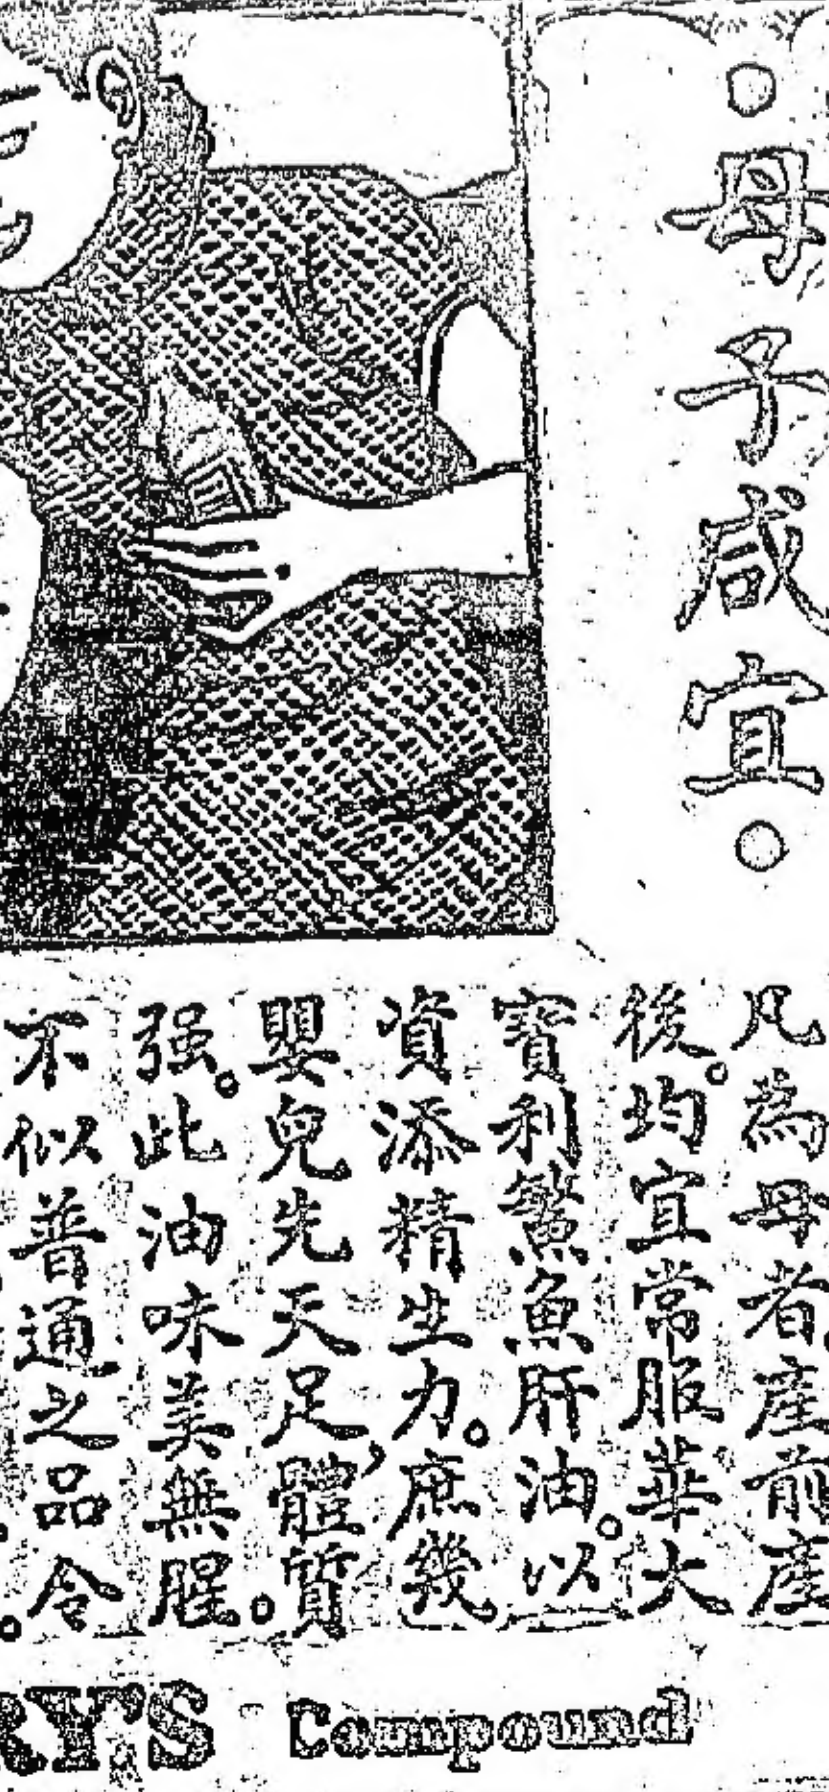 ○母子咸宜○
凡為母者產前產
後。均宜常服華大
寶利鰵魚肝油。以
資添精生力。庶幾
嬰兒先天足，體質
强。此油味美無腥。
不似普通之品令
RY'S Compound